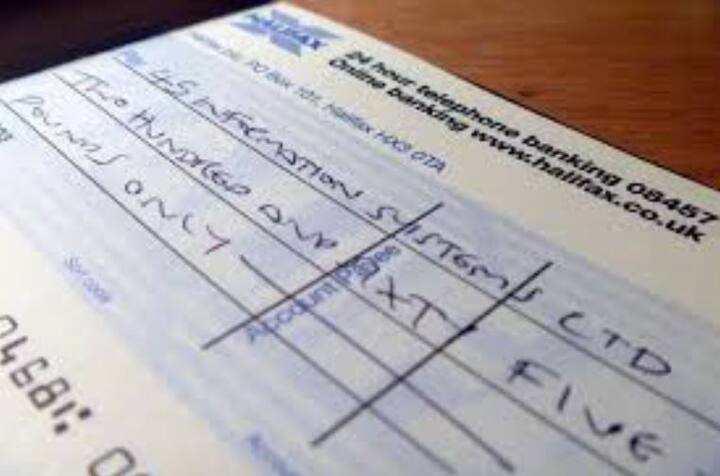 HALIFAX
24 hour telephone banking 08457
Online banking www.halifax.co.uk
PO Box 101, Halifax HX3 0TA
Pay 4S INFORMATION SYSTEMS LTD
TWO HUNDRED AND SIXTY FIVE
POUNDS ONLY
Account Payee
Sort code